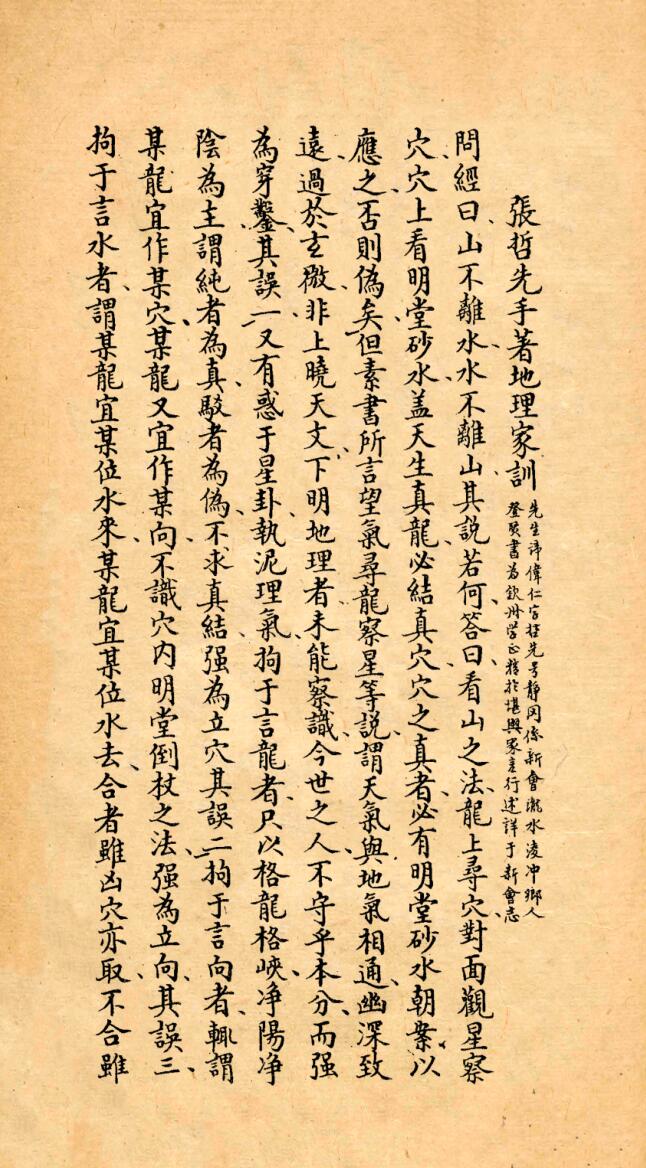 張哲先手著地理家訓
先生諱偉仁字哲先号靜岡係新會瀧水凌冲鄉人
登賢書為欽州学正精於堪輿家言行述詳于新會志
問經曰、山不離水、水不離山、其説若何、答曰、看山之法、龍上尋穴、對面觀星察
穴、穴上看明堂砂水、盖天生真龍、必結真穴、穴之真者、必有明堂砂水朝案以
應之、否則偽矣、但素書所言望氣尋龍察星等説、謂天氣與地氣相通、幽深致
遠、過於玄微、非上曉天文、下明地理者、未能察識、今世之人、不守乎本分、而强
為穿鑿、其誤一、又有惑于星卦、執泥理氣、拘于言龍者、只以格龍格峽、净陽净
陰為主、謂純者為真、駁者為偽、不求真結、强為立穴、其誤二、拘于言向者、輒謂
某龍宜作某穴、某龍又宜作某向、不識穴内明堂倒杖之法、强為立向、其誤三、
拘于言水者、謂某龍宜某位水來、某龍宜某位水去、合者雖凶穴亦取、不合雖